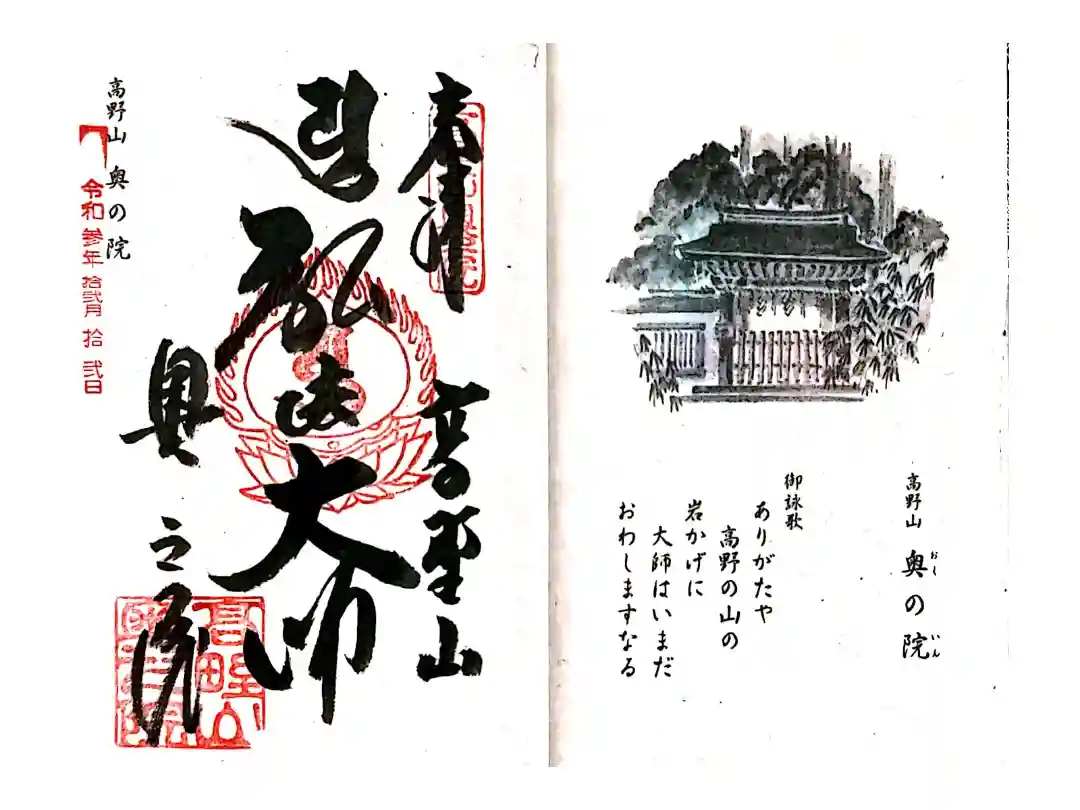 高野山 奥の院
御詠歌
ありがたや
高野の山の
岩かげに
大師はいまだ
おわしますなる
高野山
弘法大師
奥之院
高野山 奥の院
令和参年拾弐月拾弐日